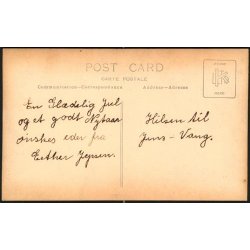 POST CARD
CARTE POSTALE
Communication—Correspondance
Address—Adresse
En Glædelig Jul
og et godt Nytaar
ønskes eder fra
Esther Jepsen.
Hilsen til
Jens-Vang.